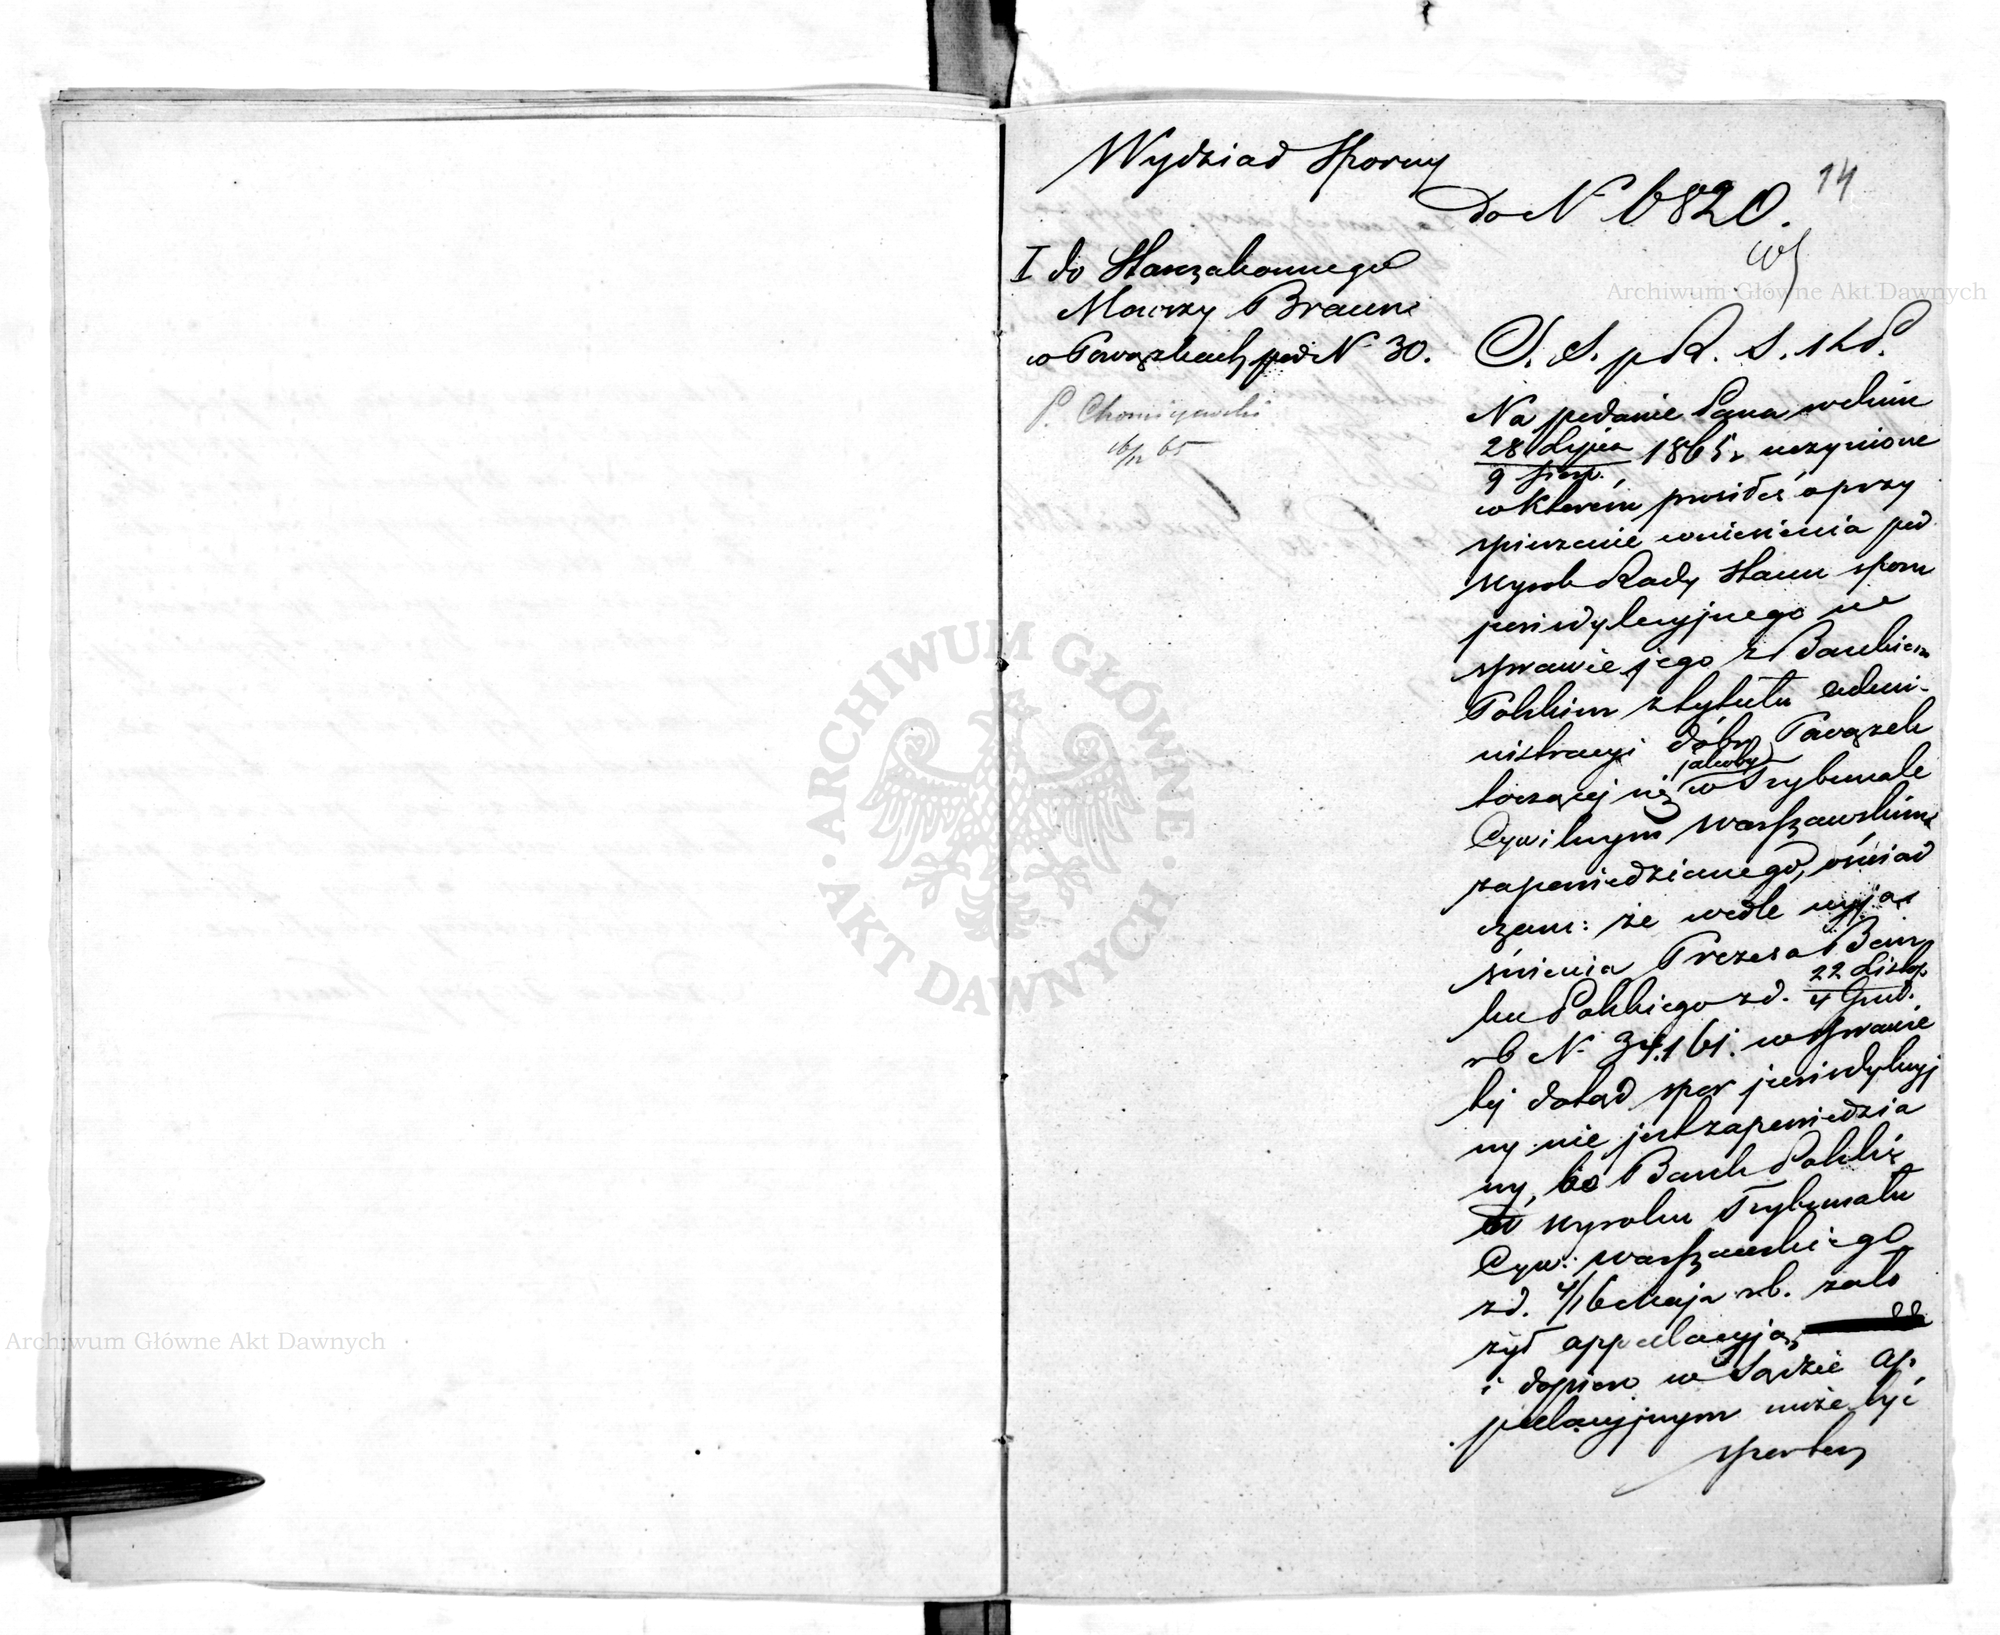 14
Wydział Sporny
do N 6820.
I do Starozakonnego
Maurzy Braun
w Powązkach pod N 30.
P. Chomiczewski
16/12 65
S. S. p R. S. 
Na podanie Pana w dniu
28 Lipca
9 Sierp. 1865 r uczynione
w którém prosiłeś o przy
spieszenie wniesienia pod
wyrok Rady Stanu sporu
jurizdykcyjnego we
sprawie jego z Bankiem
Polskim z tytułu admi-
nistracyi dóbr Powązek
toczącej się jakoby w Trybunale
Cywilnym Warszawskim
zapowiedzianego, oświad
czam: że wedle wyja
śnienia Prezesa Ban
ku Polskiego z d. 22 Listop.
4 Grud.
rb N 34.161. w sprawie
tej dotąd spor jurisdykcyj
ny nie jest zapowiedzia
ny, bo Bank Polski
od wyroku Trybunału
Cyw: Warszawskiego
z d. 4/16 Maja rb. zało
żył appellacyją
i dopiero w Sądzie ap
pellacyjnym może być
spor ten
ARCHIWUM GŁÓWNE AKT DAWNYCH
Archiwum Główne Akt Dawnych
Archiwum Główne Akt Dawnych